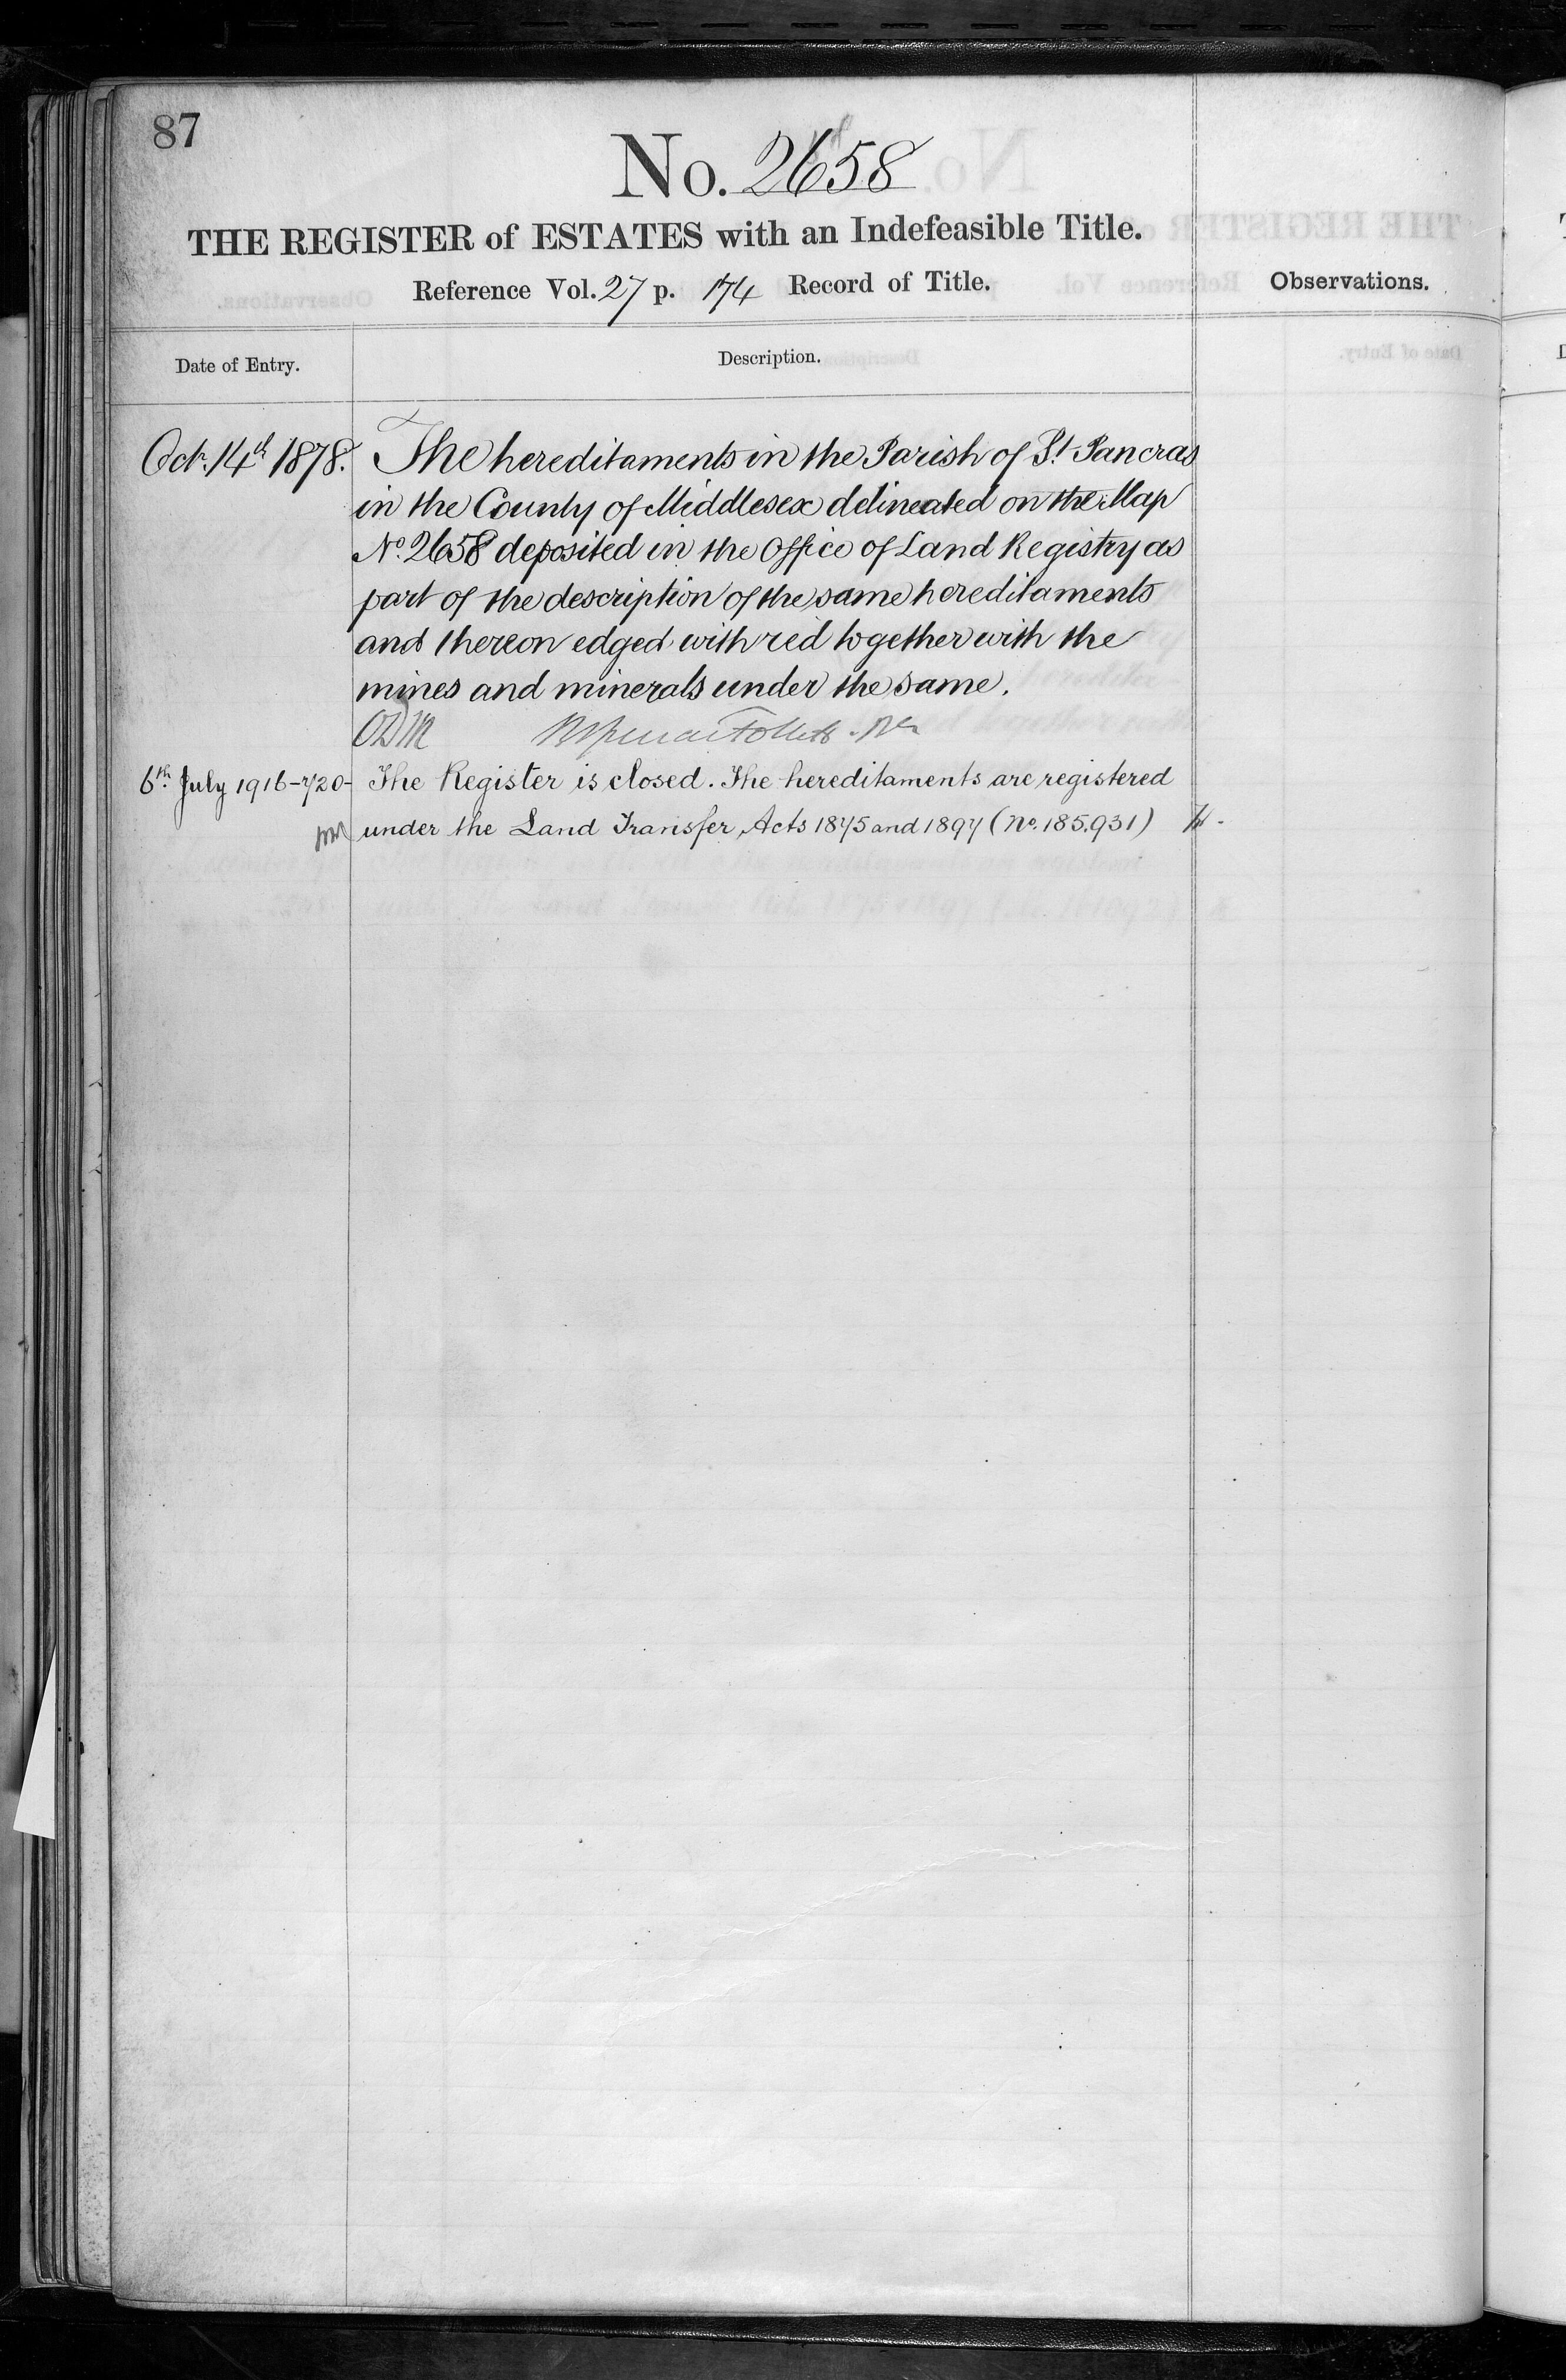 87
No. 2658
THE REGISTER of ESTATES with an Indefeasible Title.
Reference Vol. 27 p. 174 Record of Title.
Observations.
Date of Entry.
Description.
Oct. 14th 1878. The hereditaments in the Parish of St. Pancras
in the County of Middlesex delineated on the Map
No. 2658 deposited in the Office of Land Registry as
part of the description of the same hereditaments
and thereon edged with red together with the
mines and minerals under the same.
6th July 1916-720- The Register is closed. The hereditaments are registered
under the Land Transfer Acts 1875 and 1897 (No. 185.931)